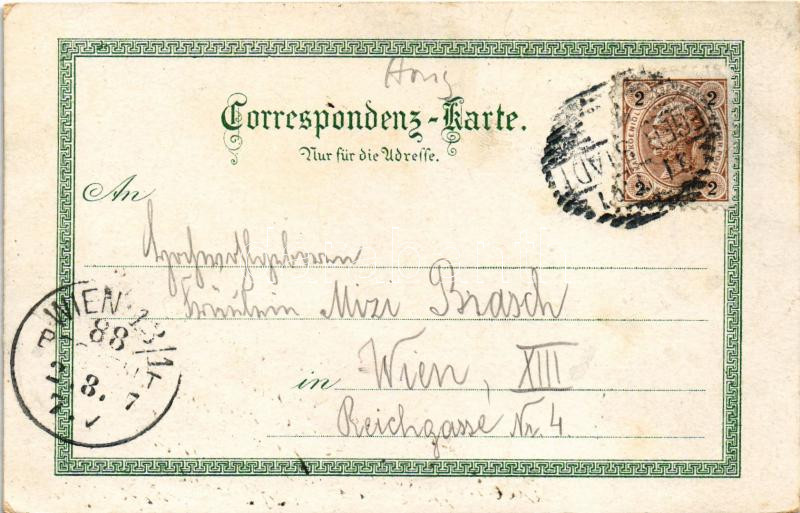 Correspondenz-Karte.
Nur für die Adresse.
2 2
2 2
An
Hochwohlgeboren
Fräulein Mizi Brasch
in Wien, XIII
Reichgasse Nr. 4.
WIEN 13/1
88
8. 7
STADT